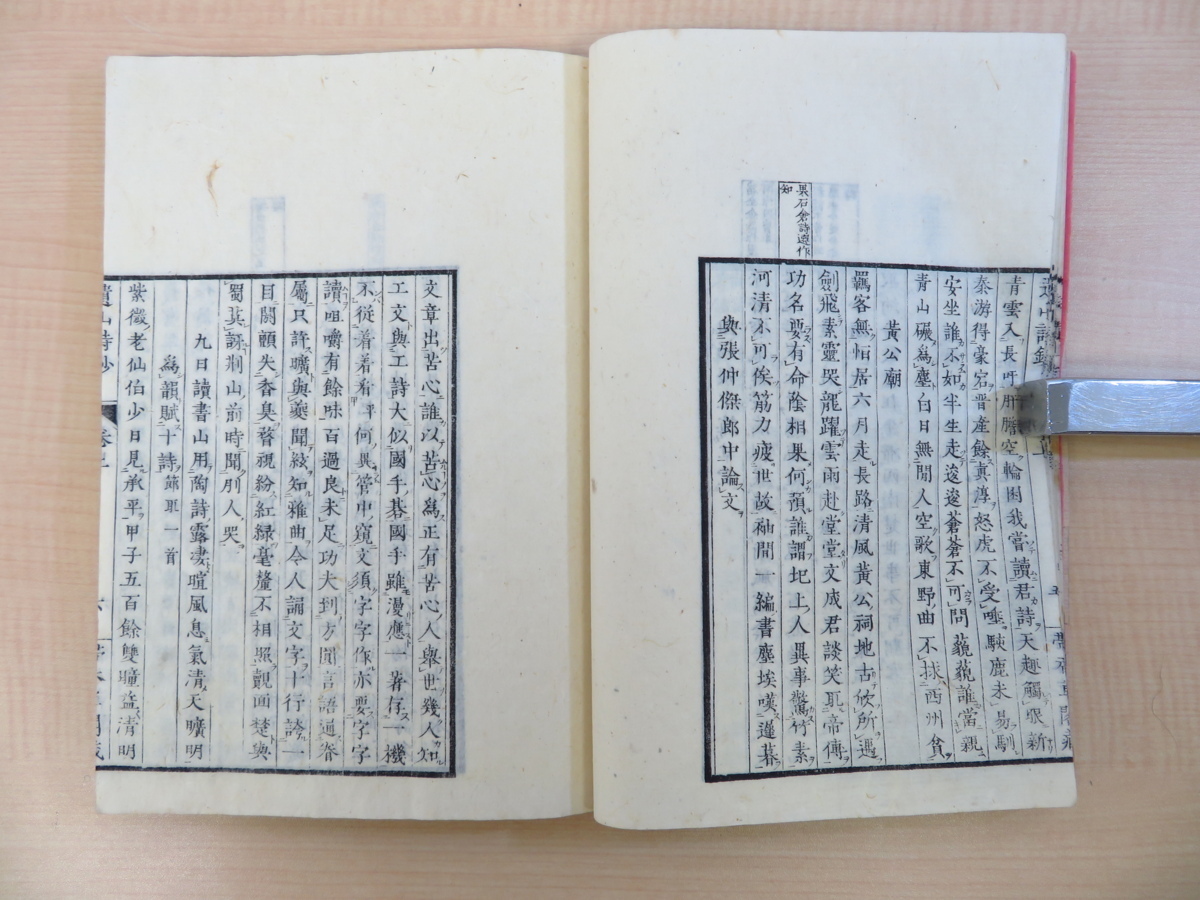 果石倉詩選作
知
青雲入長吁肝膽空輪囷我嘗讀君詩天趣觸眼新
秦游得豪宕晉産餘真淳怒虎不受唾駭鹿未易馴
安坐誰不如半生走逡逡蒼蒼不可問藐藐誰當親
青山礙爲塵白日無閒人空歌東野曲不救西州貧
黃公廟
羈客無怕居六月走長路清風黃公祠地古攸所遇
劍飛素靈哭龍躍雲雨赴堂堂文成君談笑取帝傳
功名要有命蔭相果何預誰謂圯上人異事驚竹素
河清不可俟筋力疲世故袖間一編書塵埃嘆遲暮
與張仲傑郎中論文
文章出苦心誰以苦心爲正有苦心人舉世幾人知
工文與工詩大似國手棊國手雖漫應一著存一機
不從着着看何異管中窺文須字字作亦要字字
讀咀嚼有餘味百過良未足功夫到方圓言語通眷
屬只許曠與夔聞絃知雅曲今人誦文字十行誇一
目閼顫失香臭瞀視紛紅綠毫釐不相照覿面楚與
蜀莫訝荊山前時聞刖人哭
九日讀書山用陶詩露凄暄風息氣清天曠明
爲韻賦十詩節取一首
紫微老仙伯少日見承平甲子五百餘雙瞳益清明
遺山詩抄 卷上 六